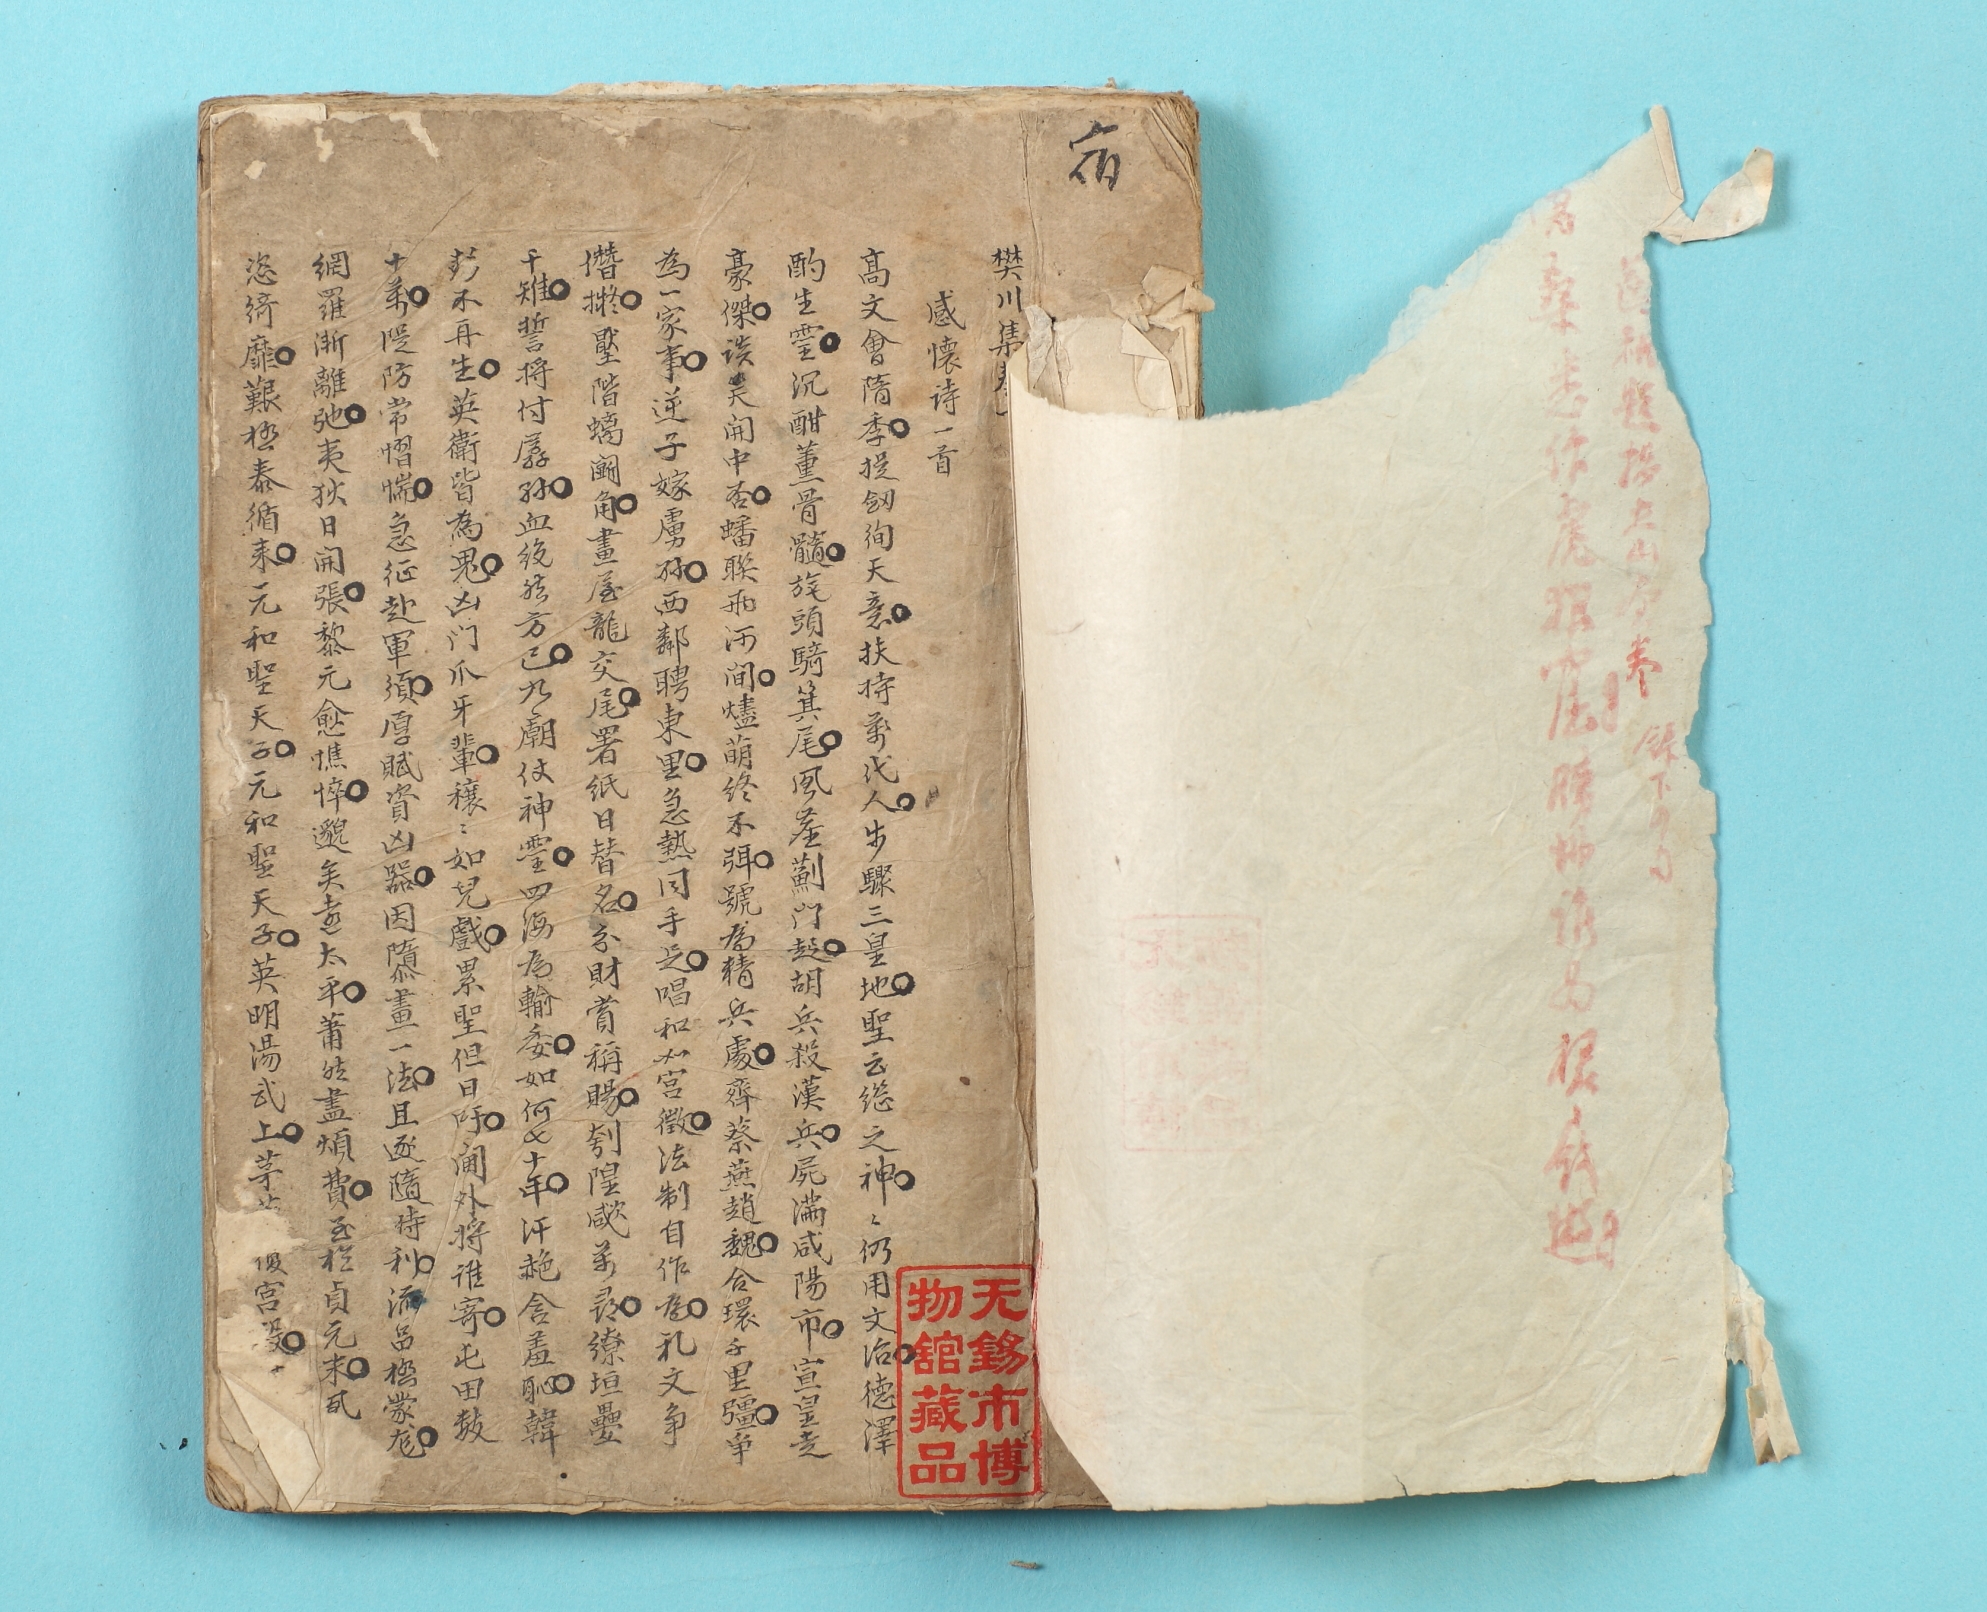 宿
樊川集卷一
感懷诗一首
高文會隋季提劒徇天意扶持萬代人步驟三皇地聖云継之神〻仍用文治德澤
酌生靈沉酣薰骨髓旄頭騎箕尾風塵薊门起胡兵殺漢兵屍滿咸陽市宣皇走
豪傑談笑開中否蟠聯两河间燼萌終不弭號為精兵處齊蔡燕趙魏合環千里疆争
為一家事逆子嫁虜孙西鄰聘東里急熱同手足唱和如宫徵法制自作為礼文争
僭擬壓階螭鬬角畫屋龍交尾署纸日替名分财賞稱賜刳隍㰹萬尋缭垣疊
千雉誓将付孱孙血绝然方已九廟仗神靈四海為輸委如何七十年汗赩含羞恥韓
彭不再生英衛皆為鬼凶门爪牙輩穰〻如兒戲累聖但日吁閫外将谁寄屯田数
十萬隄防常慴惴急征赴軍須厚賦資凶器因隳畫一法且逐隨时利流品極蒙尨
網羅渐離弛夷狄日開張黎元愈憔悴邈矣遠太平萧然盡煩費至於貞元末風
恣绮靡艱極泰循来元和聖天子元和聖天子英明湯武上茅茨 復宫殿
无錫市博
物舘藏品